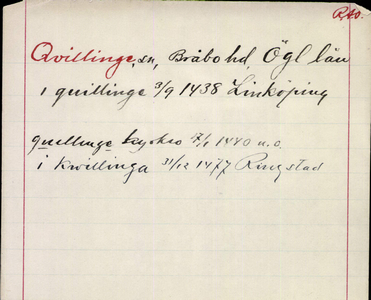 RAO.
Qvillinge, sn, Bråbo hd, Ögl län
i quillinge 3/9 1438 Linköping
quillinge kyrkio 1480 u.o.
i kwillinga 31/12 1477 Ringstad